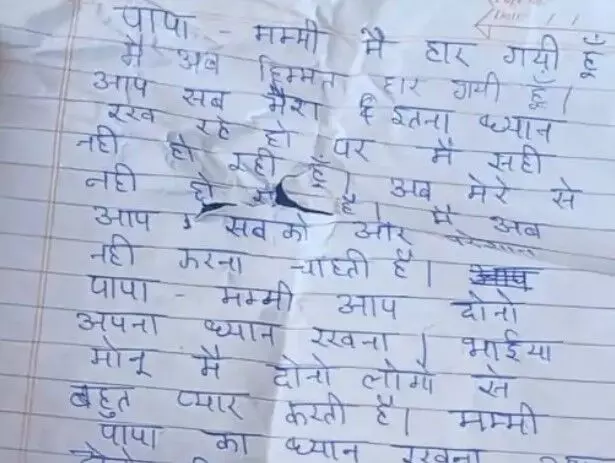 पापा - मम्मी मै हार गयी हूँ
मै अब हिम्मत हार गयी हूँ।
आप सब मेरा इतना ध्यान
रख रहे हो पर मैं सही
नही हो रही हूँ। अब मेरे से
नही हो है। मै अब
आप सबको और परेशान
नही करना चाहती हैं।
पापा - मम्मी आप दोनो
अपना ध्यान रखना। भाईया
मोनू मै दोनो लोगो से
बहुत प्यार करती हैं। मम्मी
पापा का ध्यान रखना